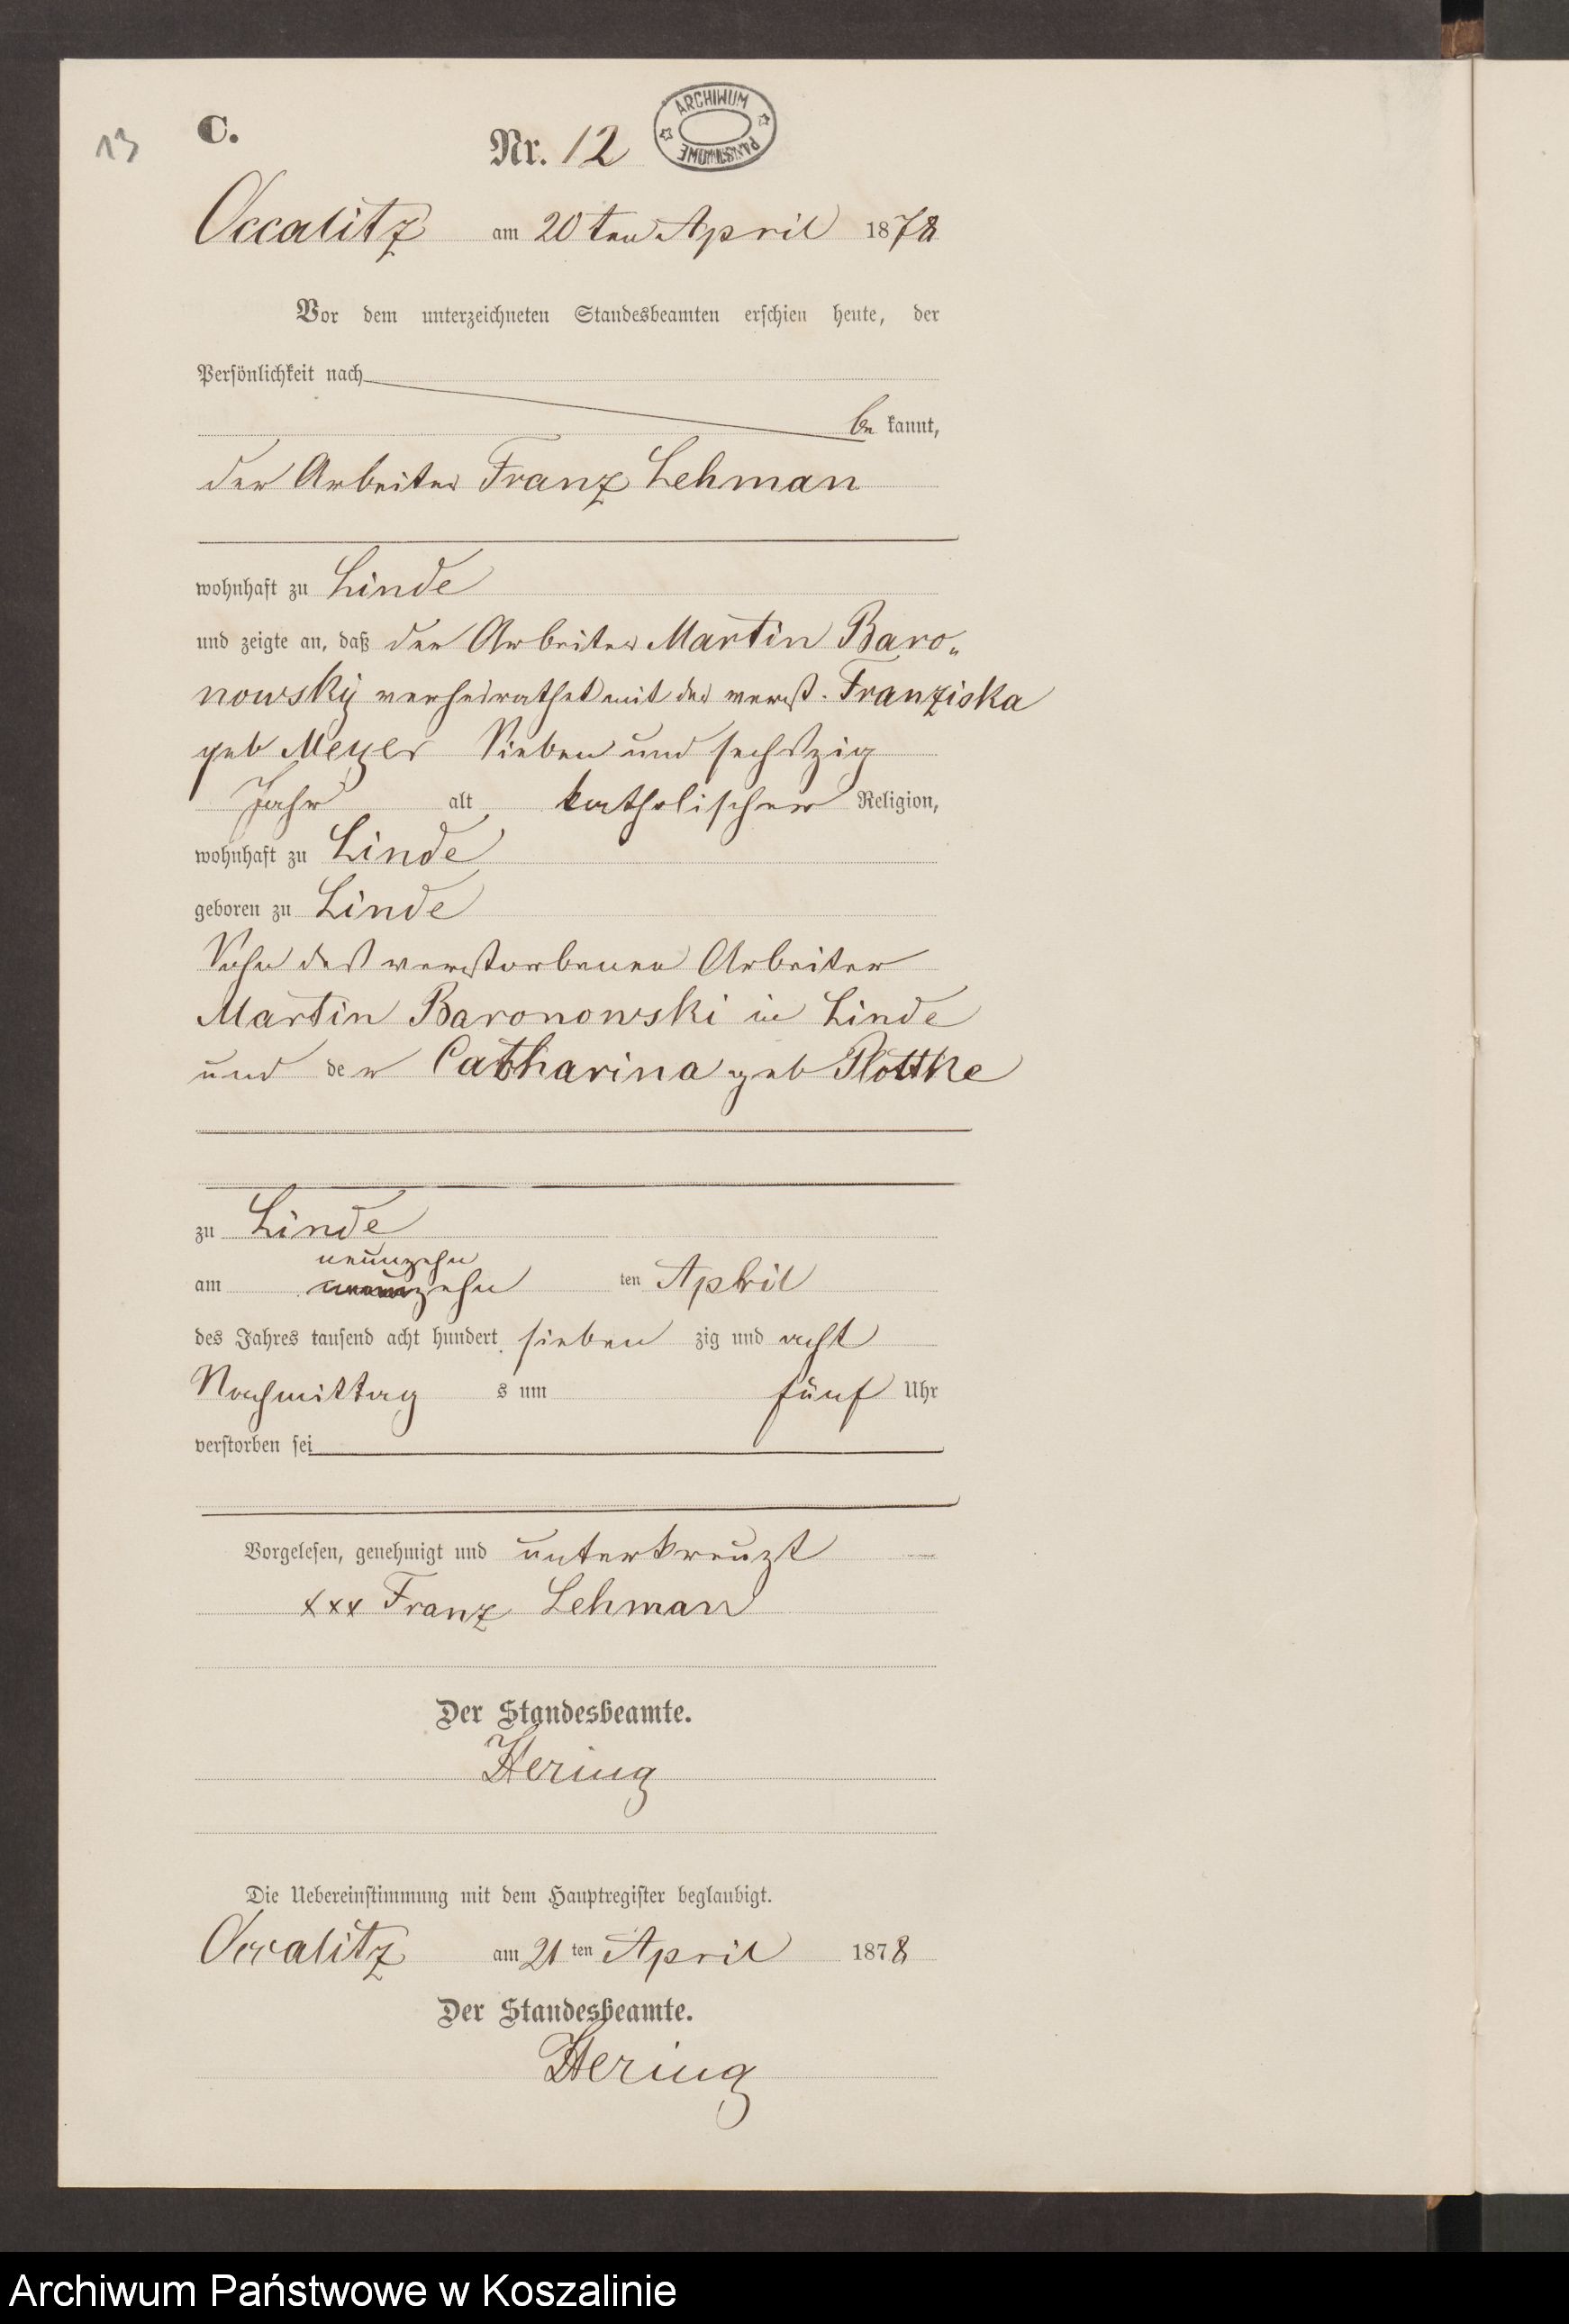 13
C.
Nr. 12
ARCHIWUM PAŃSTWOWE
Occalitz am 20ten April 1878
Vor dem unterzeichneten Standesbeamten erschien heute, der
Persönlichkeit nach
be kannt,
der Arbeiter Franz Lehman
wohnhaft zu Linde
und zeigte an, daß der Arbeiter Martin Baro-
nowsky verheirathet mit der verst. Franziska
geb Meyer Sieben und sechszig
Jahr alt katholischer Religion,
wohnhaft zu Linde
geboren zu Linde
Sohn des verstorbenen Arbeiter
Martin Baronowski in Linde
und der Catharina geb Plottke
zu Linde
neunzehn
am zehn ten April
des Jahres tausend acht hundert sieben zig und acht
Nachmittag s um fünf Uhr
verstorben sei
Vorgelesen, genehmigt und unterkreuzt
xxx Franz Lehman
Der Standesbeamte.
Hering
Die Uebereinstimmung mit dem Hauptregister beglaubigt.
Occalitz am 21 ten April 1878
Der Standesbeamte.
Hering
Archiwum Państwowe w Koszalinie